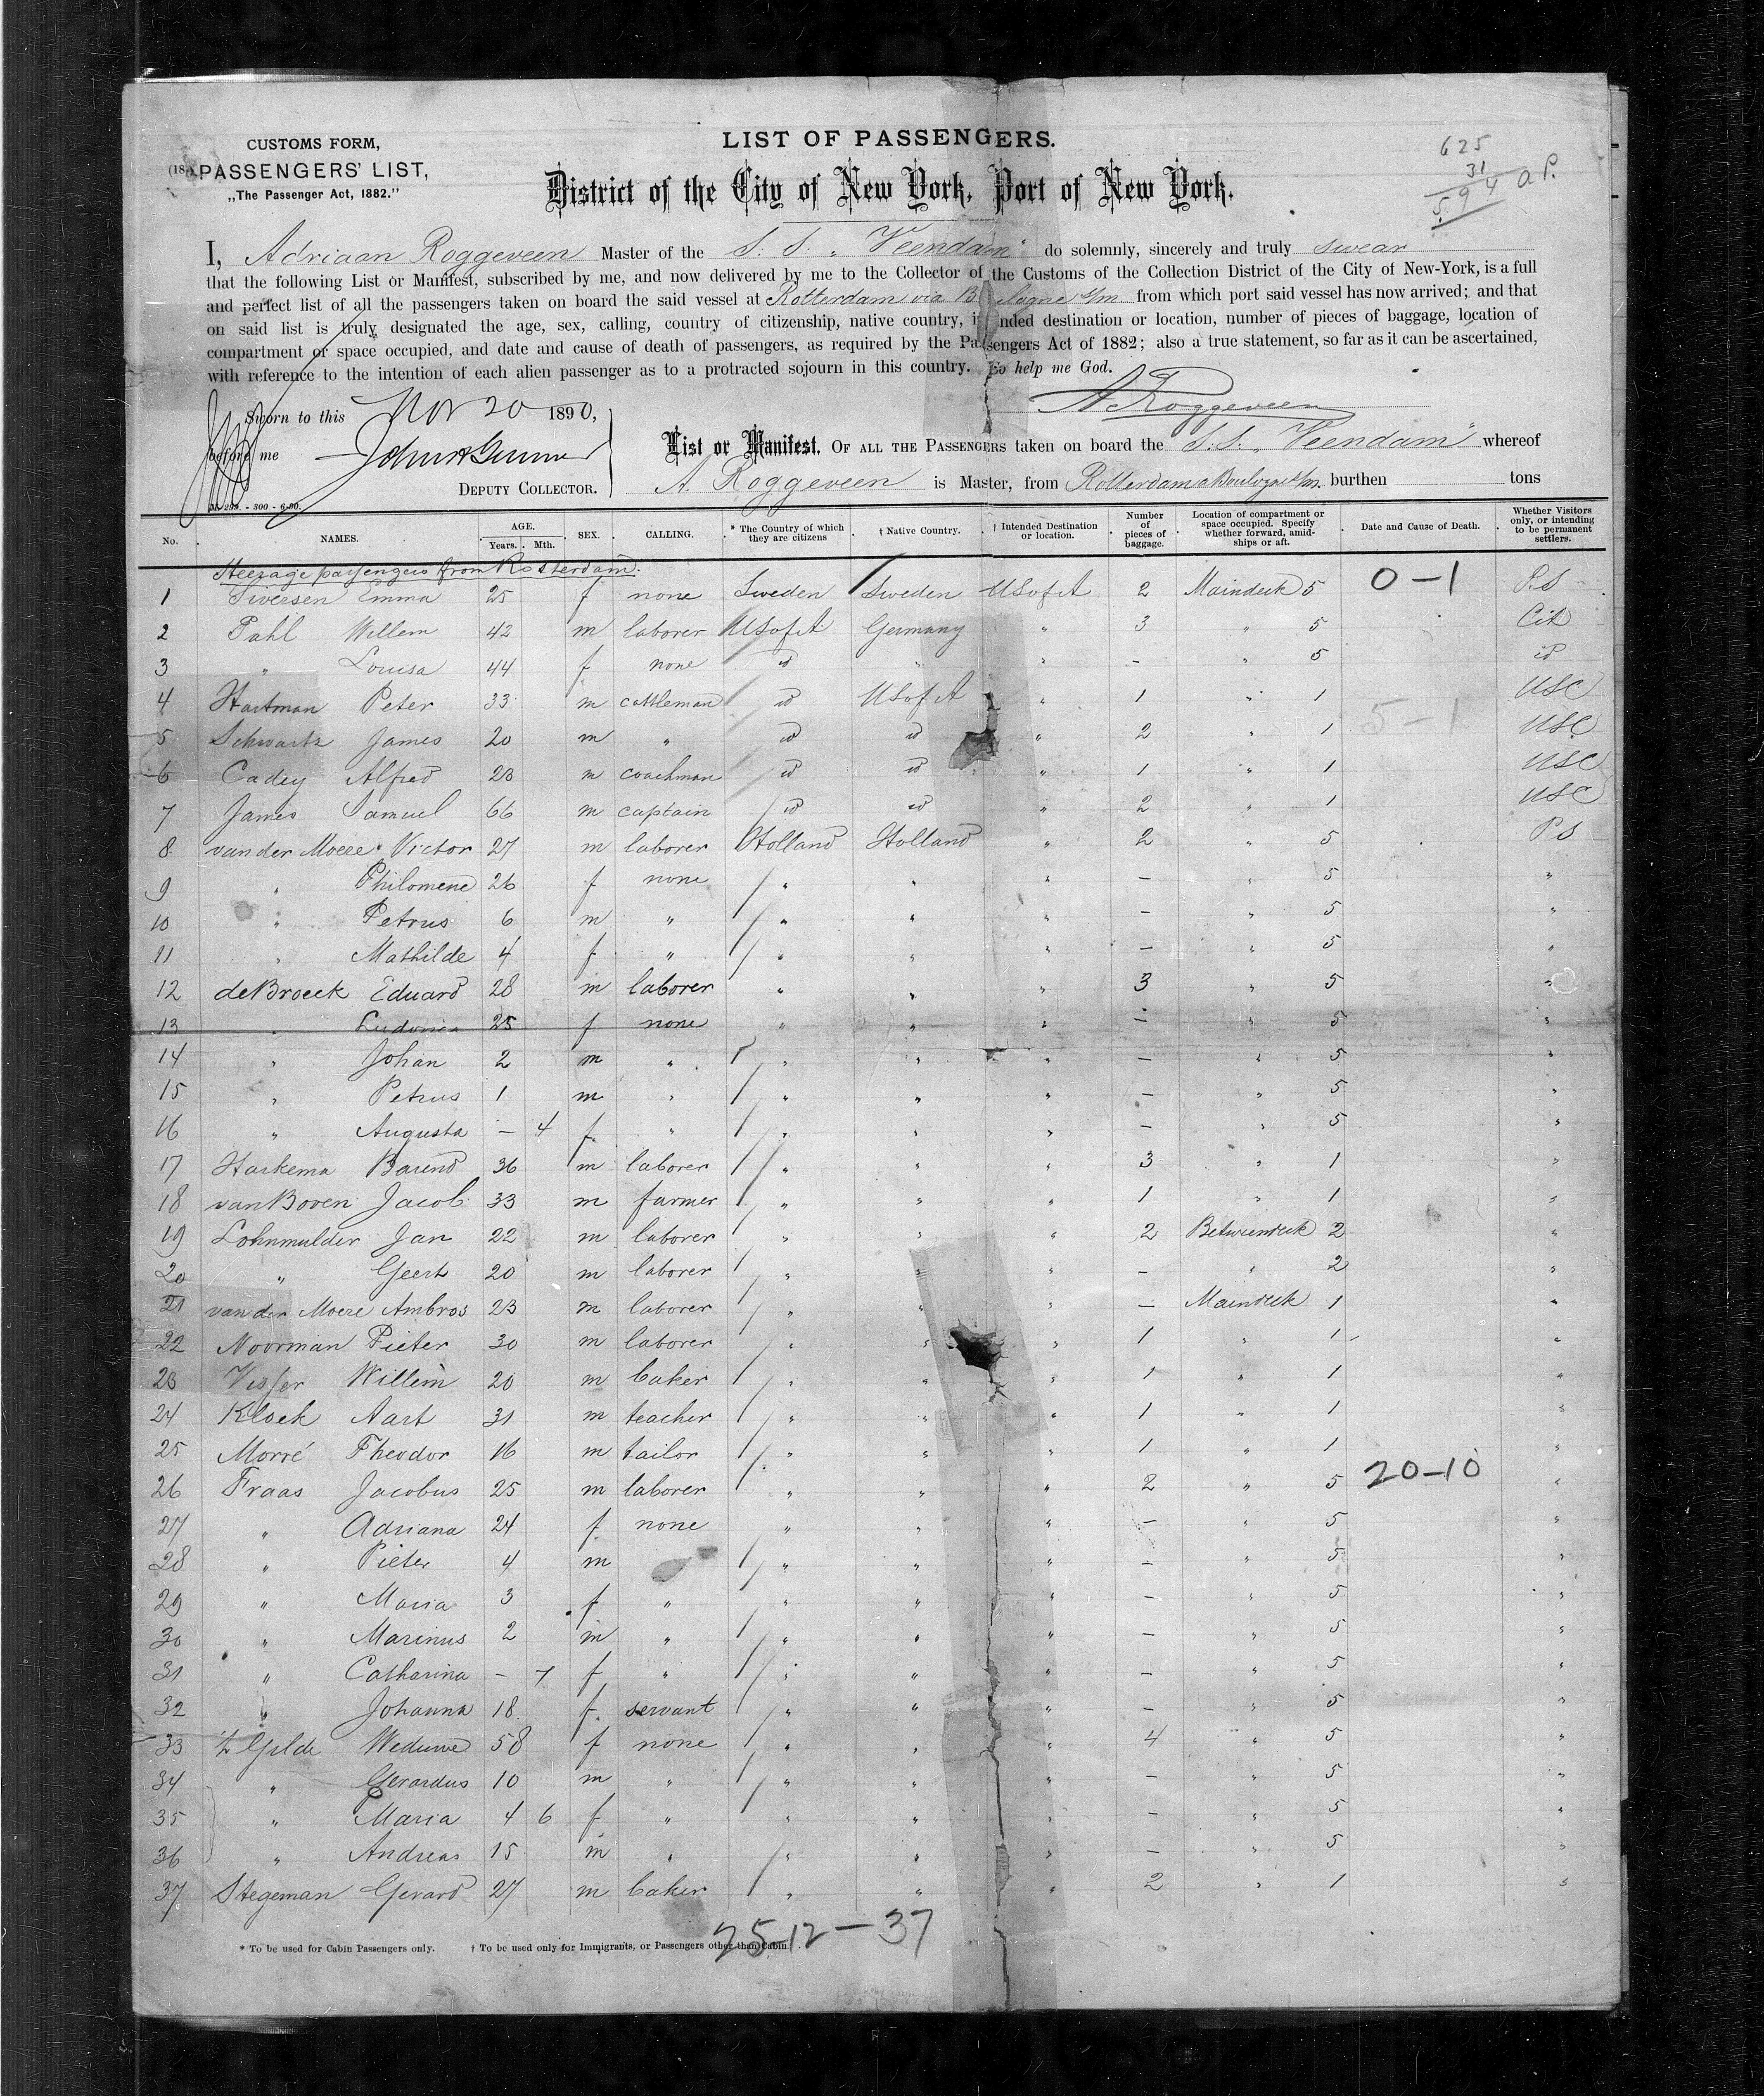 CUSTOMS FORM,
PASSENGERS' LIST,
„The Passenger Act, 1882."
LIST OF PASSENGERS.
District of the City of New York, Port of New York.
625
31
594 a P.
I, Adriaan Roggeveen Master of the S. S. „ Veendam" do solemnly, sincerely and truly swear
that the following List or Manifest, subscribed by me, and now delivered by me to the Collector of the Customs of the Collection District of the City of New-York, is a full
and perfect list of all the passengers taken on board the said vessel at Rotterdam via Boulogne s/m from which port said vessel has now arrived; and that
on said list is truly designated the age, sex, calling, country of citizenship, native country, intended destination or location, number of pieces of baggage, location of
compartment or space occupied, and date and cause of death of passengers, as required by the Passengers Act of 1882; also a true statement, so far as it can be ascertained,
with reference to the intention of each alien passenger as to a protracted sojourn in this country. So help me God.
Sworn to this Nov 20 1890,
A Roggeveen
before me
DEPUTY COLLECTOR.
List or Manifest, OF ALL THE PASSENGERS taken on board the S. S. „ Veendam" whereof
A. Roggeveen is Master, from Rotterdam a Boulogne s/m. burthen tons
No. NAMES. AGE. Years. Mth. SEX. CALLING. * The Country of which they are citizens † Native Country. † Intended Destination or location. Number of pieces of baggage. Location of compartment or space occupied. Specify whether forward, amidships or aft. Date and Cause of Death. Whether Visitors only, or intending to be permanent settlers.
Steerage passengers from Rotterdam.
1 Siversen Emma 25 f none Sweden Sweden USofA 2 Maindeck 5 0-1 P.S
2 Pahl Willem 42 m laborer USofA Germany " 3 " 5 Cit
3 " Louisa 44 f none id " " - " 5 id
4 Hartman Peter 33 m cattleman id USofA " 1 " 1 USC
5 Schwartz James 20 m " id id " 2 " 1 5-1 USC
6 Cadey Alfred 23 m coachman id id " 1 " 1 USC
7 James Samuel 66 m captain id id " 2 " 1 USC
8 van der Moere Victor 27 m laborer Holland Holland " 2 " 5 PS
9 " Philomene 26 f none " " " - " 5 "
10 " Petrus 6 m " " " " - " 5 "
11 " Mathilde 4 f " " " " - " 5 "
12 deBroeck Eduard 28 m laborer " " " 3 " 5 "
13 " Ludovica 25 f none " " " - " 5 "
14 " Johan 2 m " " " " - " 5 "
15 " Petrus 1 m " " " " - " 5 "
16 " Augusta - 4 f. " " " " - " 5 "
17 Harkema Barend 36 m laborer " " " 3 " 1 "
18 vanBoven Jacob 33 m farmer " " " 1 " 1 "
19 Lohnmulder Jan 22 m laborer " " " 2 Betweendeck 2 "
20 " Geert 20 m laborer " " " - " 2 "
21 van der Moere Ambros 23 m laborer " " " - Maindeck 1 "
22 Noorman Pieter 30 m laborer " " " 1 " 1 "
23 Visser Willem 20 m baker " " " 1 " 1 "
24 Kloek Aart 31 m teacher " " " 1 " 1 "
25 Morré Theodor 16 m tailor " " " 1 " 1 "
26 Fraas Jacobus 25 m laborer " " " 2 " 5 20-10 "
27 " Adriana 24 f. none " " " - " 5 "
28 " Pieter 4 m " " " - " 5 "
29 " Maria 3 f " " " " - " 5 "
30 " Marinus 2 m " " " " - " 5 "
31 " Catharina - 7 f " " " " - " 5 "
32 " Johanna 18 f. servant " " " - " 5 "
33 't Gilde Weduwe 58 f none " " " 4 " 5 "
34 " Gerardus 10 m " " " " - " 5 "
35 " Maria 4 6 f " " " " - " 5 "
36 " Andreas 15 m " " " " - " 5 "
37 Stegeman Gerard 27 m baker " " " 2 " 1 "
25-12-37
* To be used for Cabin Passengers only. † To be used only for Immigrants, or Passengers other than Cabin.